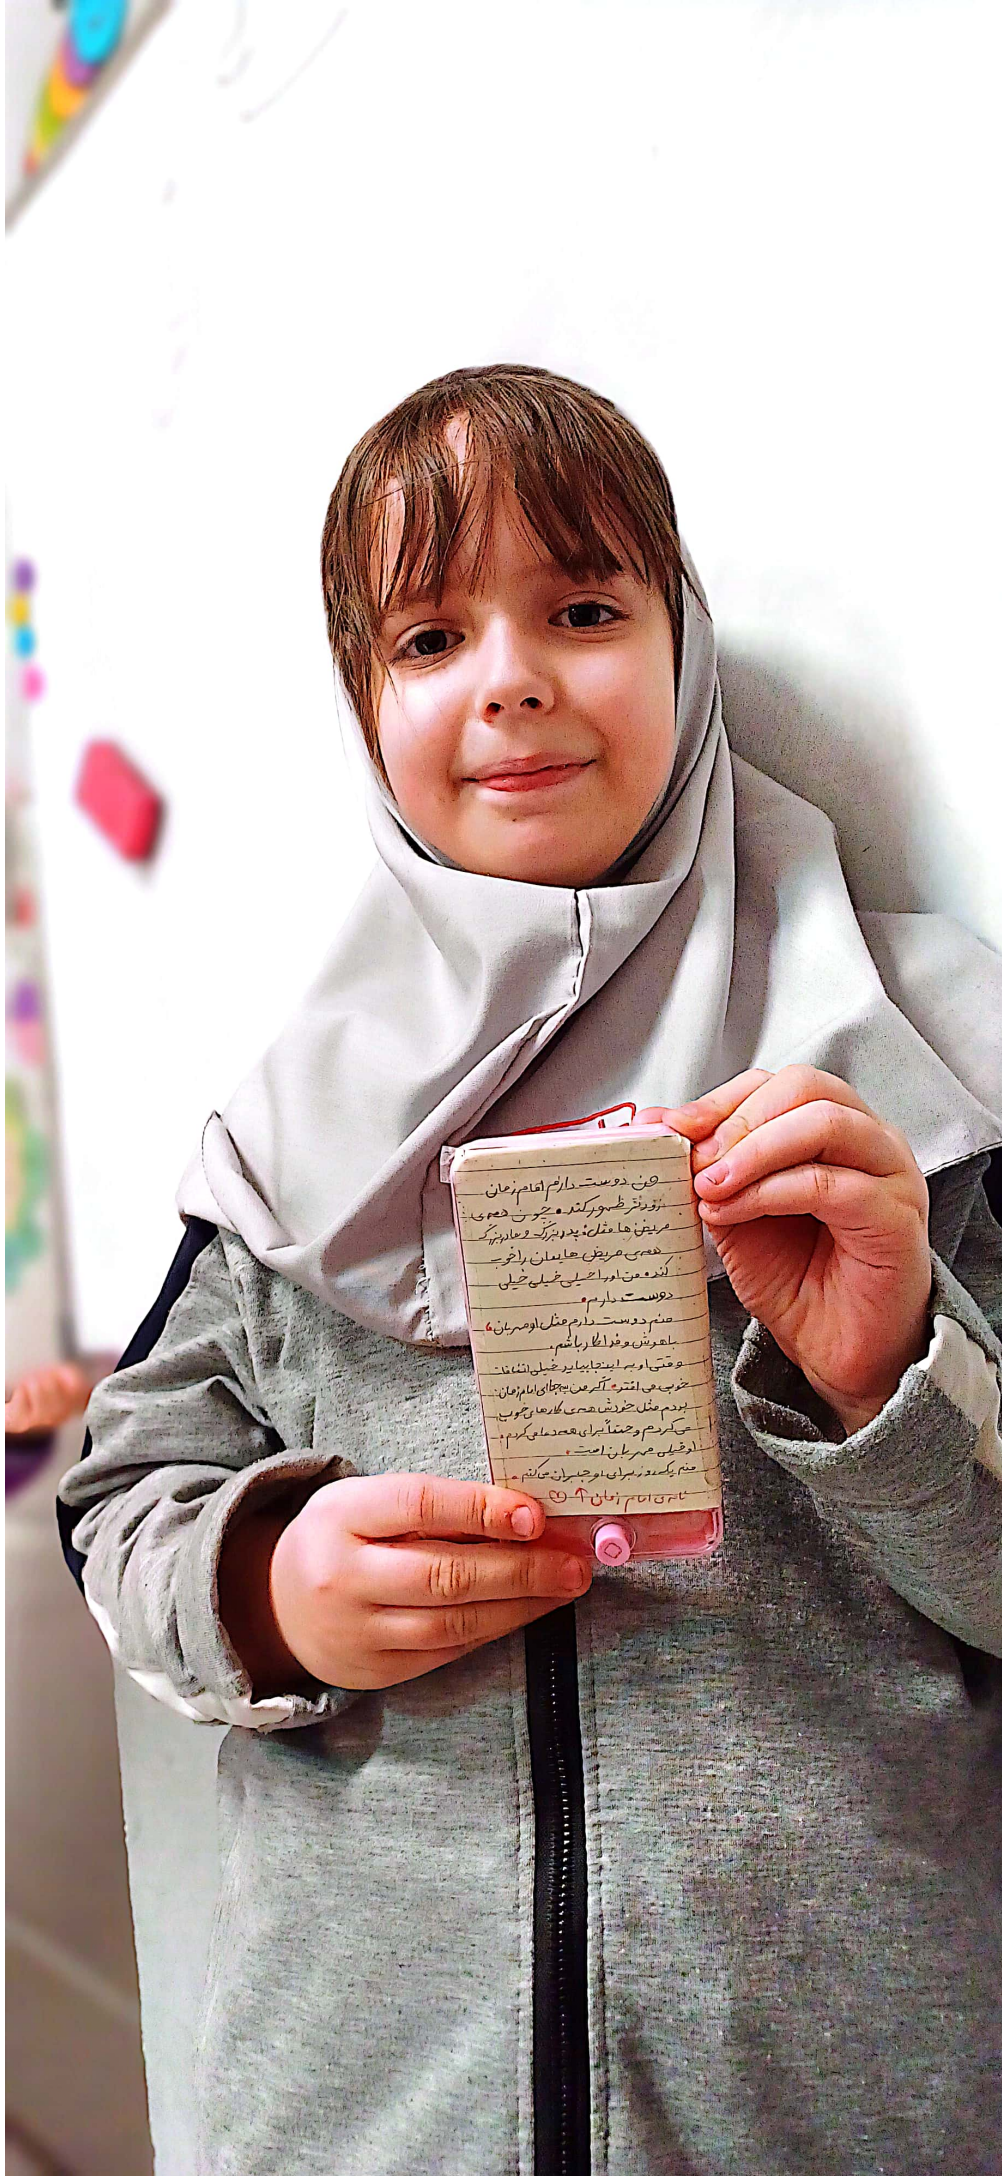 من دوست دارم امام زمان
زودتر ظهور کند. چون همه‌ی
مریض ها مثل: پدربزرگ و مادربزرگ
همه‌ی مریض هایمان را خوب
کند. من او را خیلی خیلی خیلی
دوست دارم.
منم دوست دارم مثل او مهربان،
باهوش و فداکار باشم.
وقتی او به اینجا بیاید خیلی اتفاقات
خوب می افتد. اگر من به جای امام زمان
بودم مثل خودش همه‌ی کارهای خوب
می کردم و حتماً برای همه دعا می کردم.
او خیلی مهربان است.
منم یک روز برای او جبران می‌کنم.
نامه‌ی امام زمان ↑